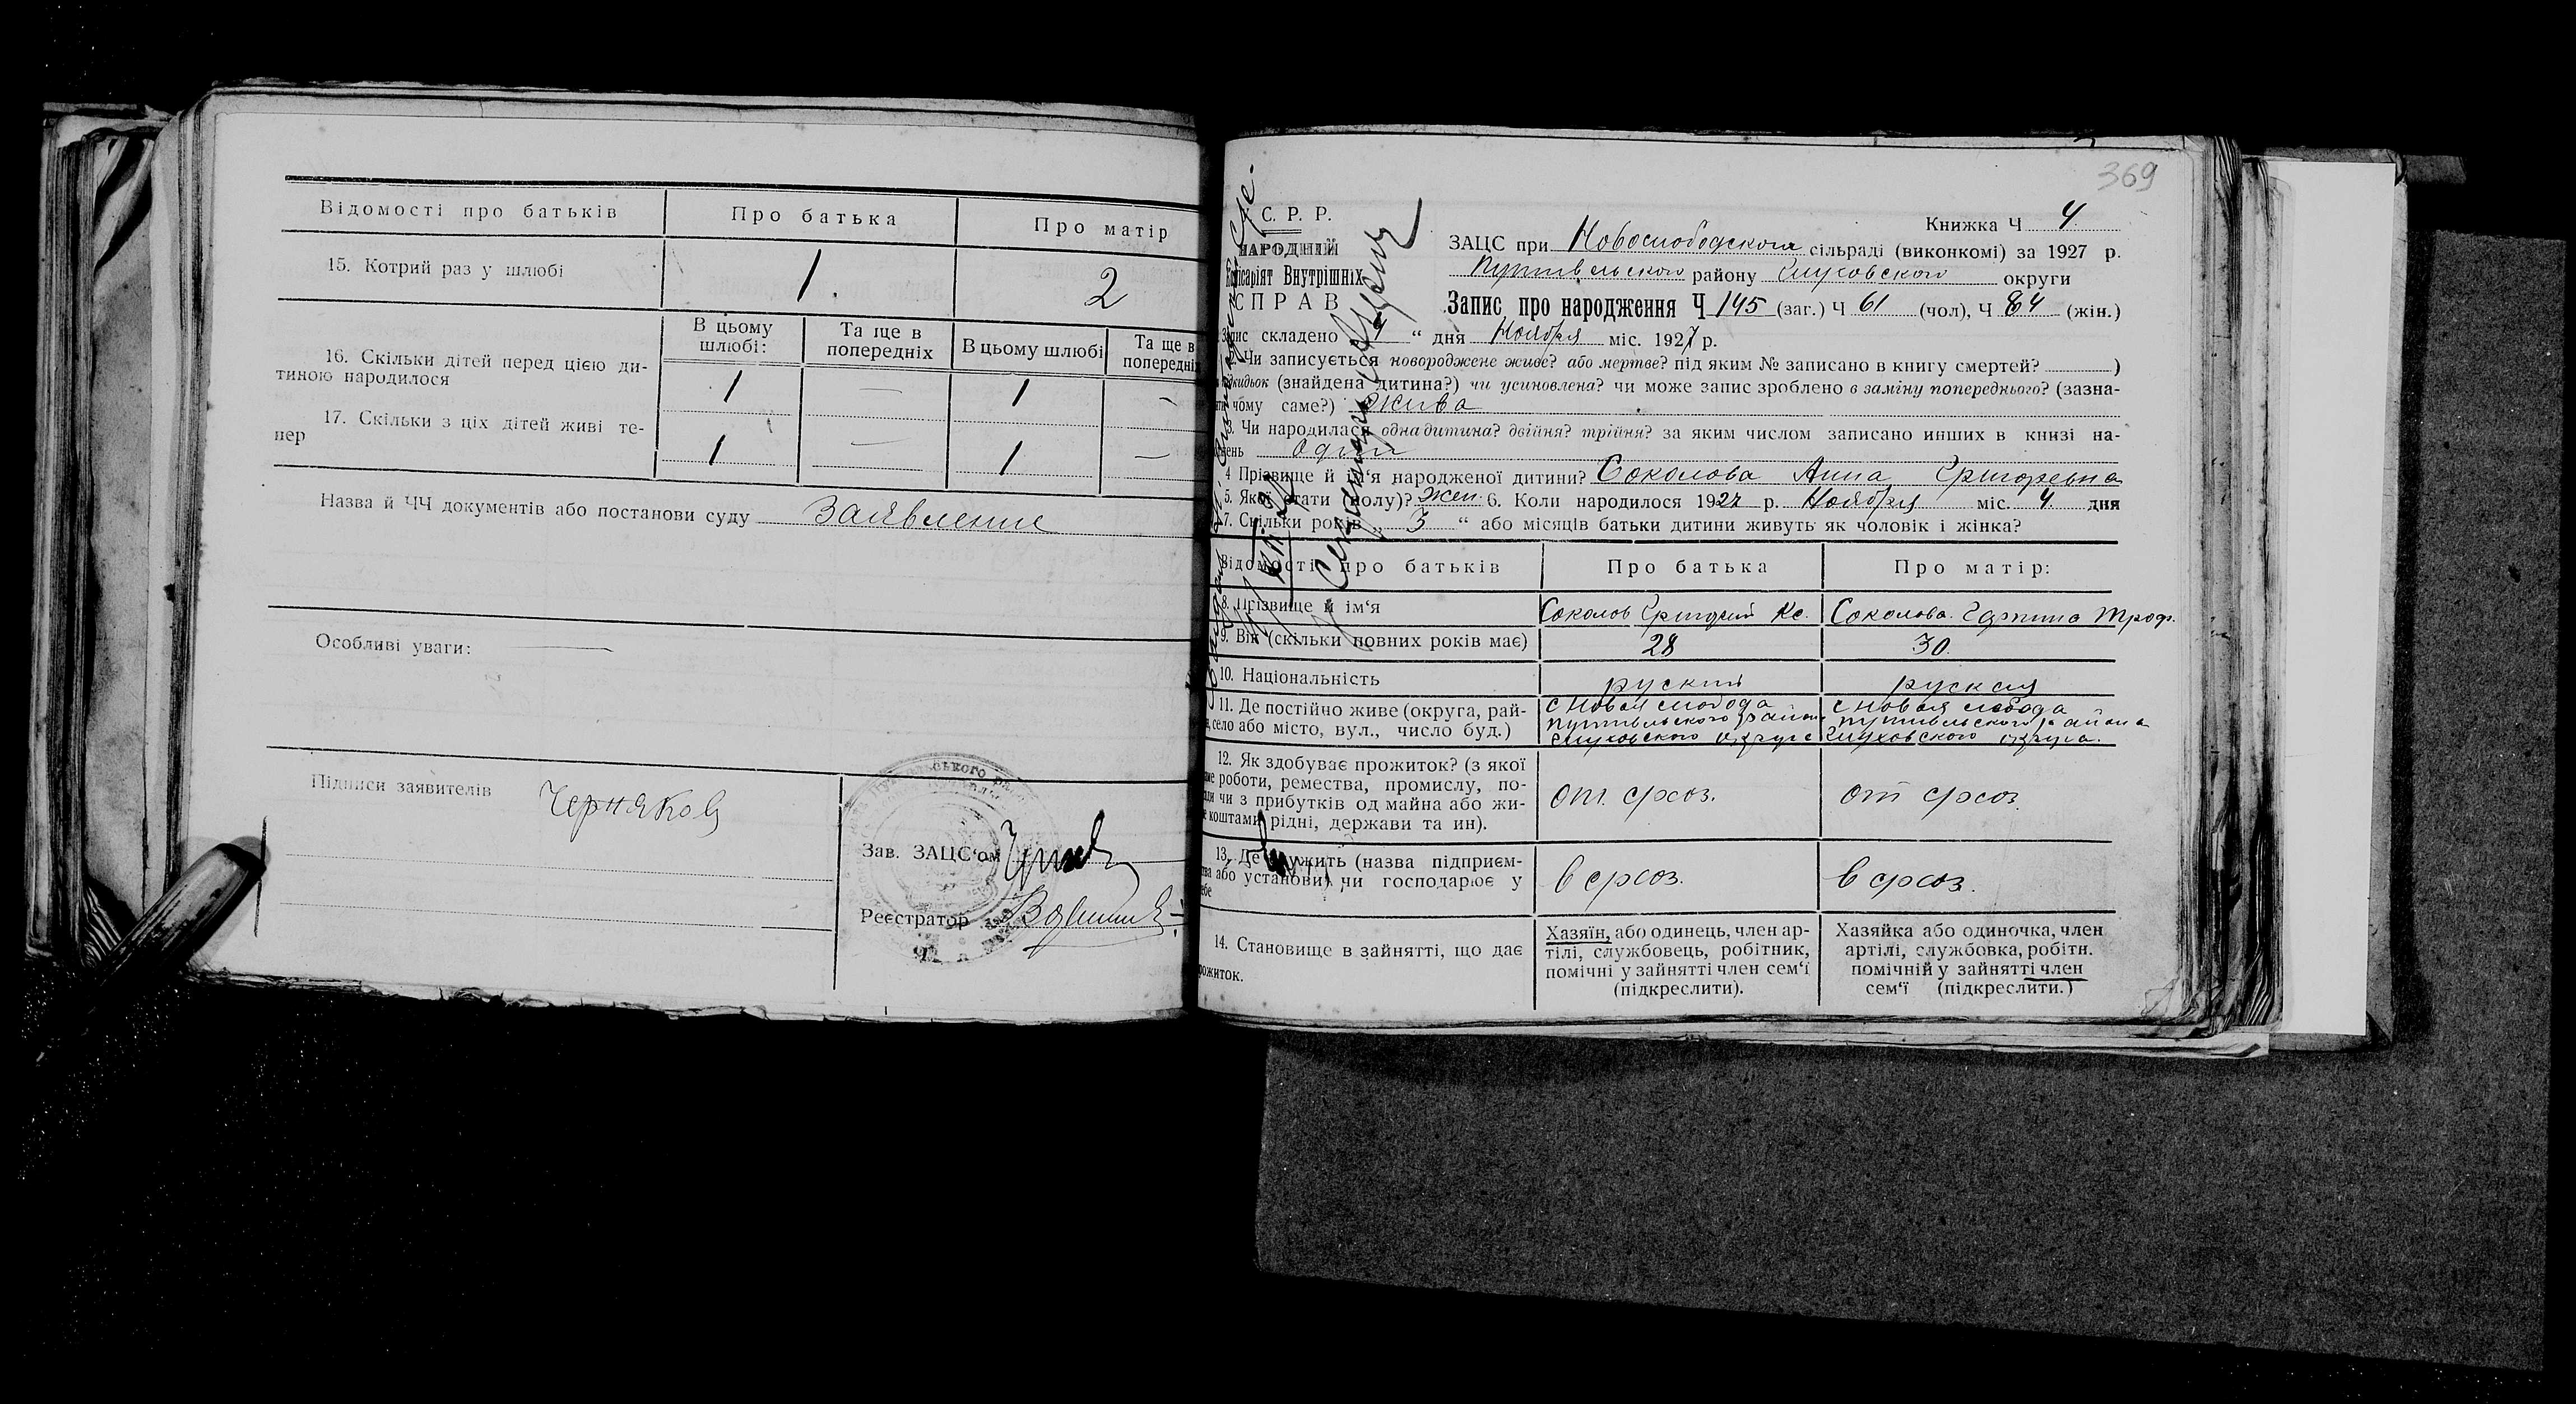 Відомості про батьків
Про батька
Про матір
15. Котрий раз у шлюбі
1
2
В цьому шлюбі:
Та ще в попередніх
В цьому шлюбі
Та ще в попередніх
16. Скільки дітей перед цією ди-
тиною народилося
1 — 1 —
17. Скільки з ціх дітей живі те-
пер
1 — 1 —
Назва й ЧЧ документів або постанови суду Заявление
Особливі уваги: —
Підписи заявителів Черняков
Зав. ЗАЦС'ом
Реєстратор
369
С. Р. Р.
НАРОДНІЙ
Комісаріят Внутрішніх
СПРАВ
Книжка Ч 4.
ЗАЦС при Новослободском сільраді (виконкомі) за 1927 р.
Путивльского району Глуховского округи
Запис про народження Ч 145 (заг.) Ч 61 (чол), Ч 84 (жін.)
Запис складено „ 4 “ дня Ноября міс. 1927 р.
Чи записується новороджене живе? або мертве? під яким № записано в книгу смертей? )
підкидьок (знайдена дитина?) чи усиновлена? чи може запис зроблено в заміну попереднього? (зазна-
чому саме?) Жива
3. Чи народилася одна дитина? двійня? трійня? за яким числом записано инших в книзі на-
Один
4 Прізвище й ім'я народженої дитини? Соколова Анна Григорьевна
5. Якої стати (полу)? жен. 6. Коли народилося 1927 р. Ноября міс. 4. дня
7. Скільки років „ 3 “ або місяців батьки дитини живуть як чоловік і жінка?
Відомості про батьків
Про батька
Про матір:
8. Прізвище й ім'я
Соколов Григорий Кс.
Соколова Троф.
9. Вік (скільки повних років має)
28
30.
10. Національність
руский
руская
11. Де постійно живе (округа, рай-
село або місто, вул., число буд.)
с Новая слобода
Путивльского района
Глуховского округа
с Новая слобода
Путивльского района
Глуховского округа.
12. Як здобуває прожиток? (з якої
роботи, ремества, промислу, по-
чи з прибутків од майна або жи-
коштами рідні, держави та ин).
от с/хоз.
от с/хоз.
13. Де служить (назва підприєм-
ва або установи) чи господарює у
себе
в с/хоз.
в с/хоз.
14. Становище в зайнятті, що дає
прожиток.
Хазяїн, або одинець, член ар-
тілі, службовець, робітник,
помічні у зайнятті член сем'ї
(підкреслити).
Хазяйка або одиночка, член
артілі, службовка, робітн.
помічній у зайнятті член
сем'ї (підкреслити.)